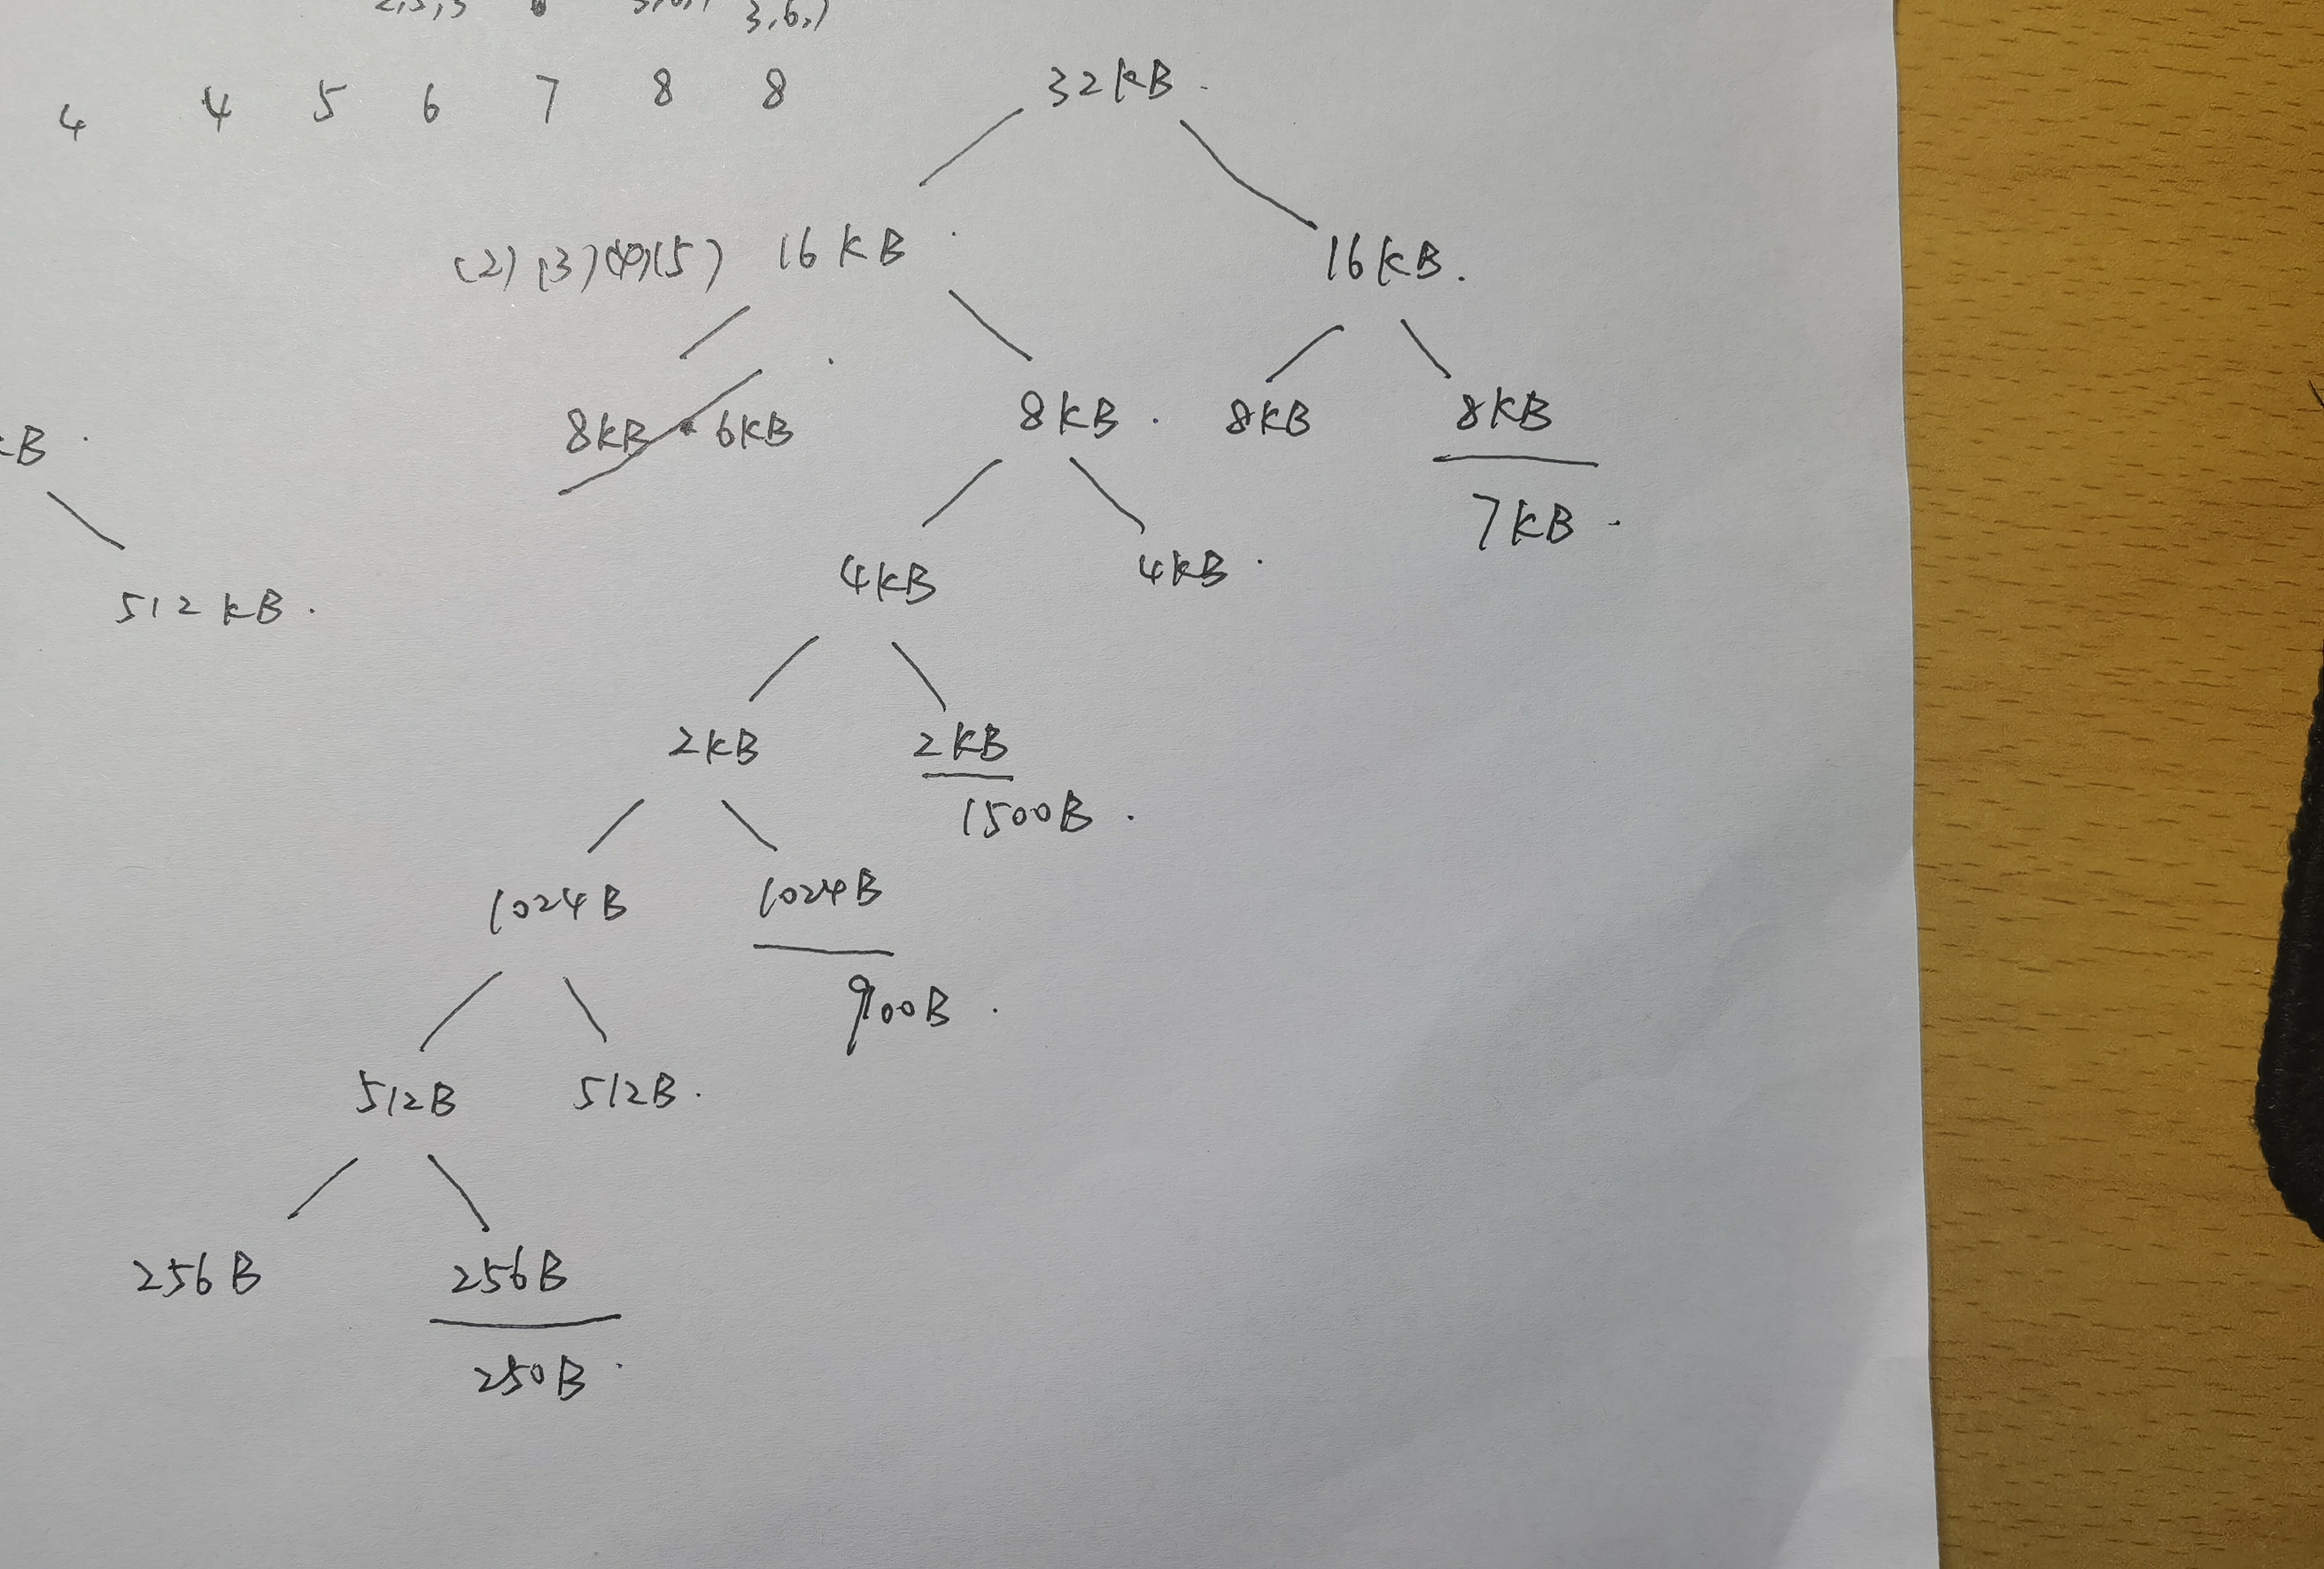 3,6,7
4 4 5 6 7 8 8
32KB.
(2) (3) (4) (5) 16KB
16KB.
8KB 6KB
8KB. 8KB 8KB
KB
7KB.
4KB 4KB.
512KB.
2KB 2KB
1500B.
1024B 1024B
900B.
512B 512B.
256B 256B
250B.